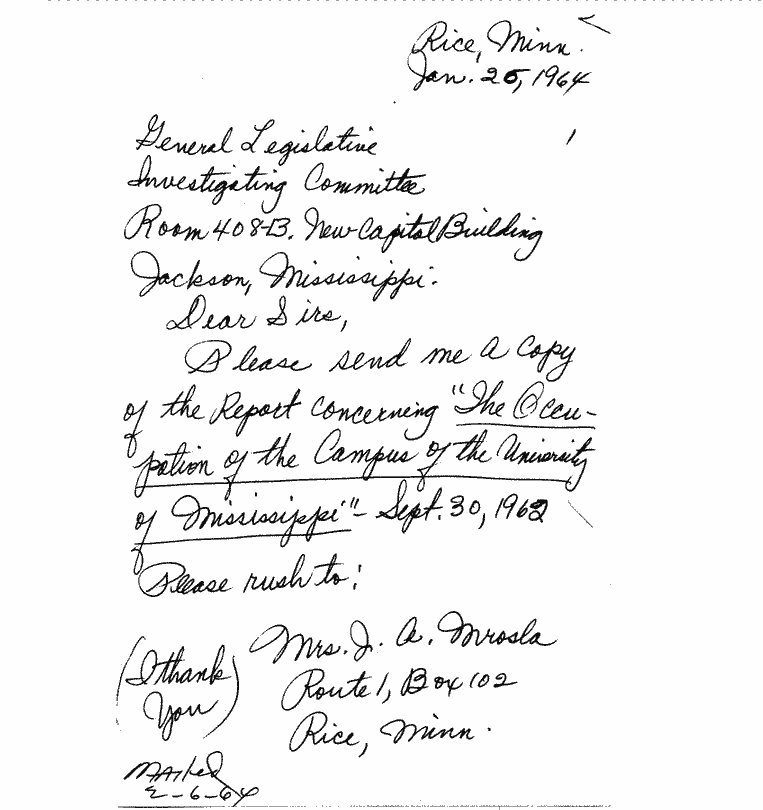 Rice, Minn.
Jan. 25, 1964
General Legislative
Investigating Committee
Room 408-B. New Capitol Building
Jackson, Mississippi.
Dear Sirs,
Please send me a copy
of the Report concerning "The Occu-
pation of the Campus of the University
of Mississippi" - Sept. 30, 1962
Please rush to:
Mrs. J. A. Mrosla
(I thank
Route 1, Box 102
You)
Rice, Minn.
Mailed
2-6-64